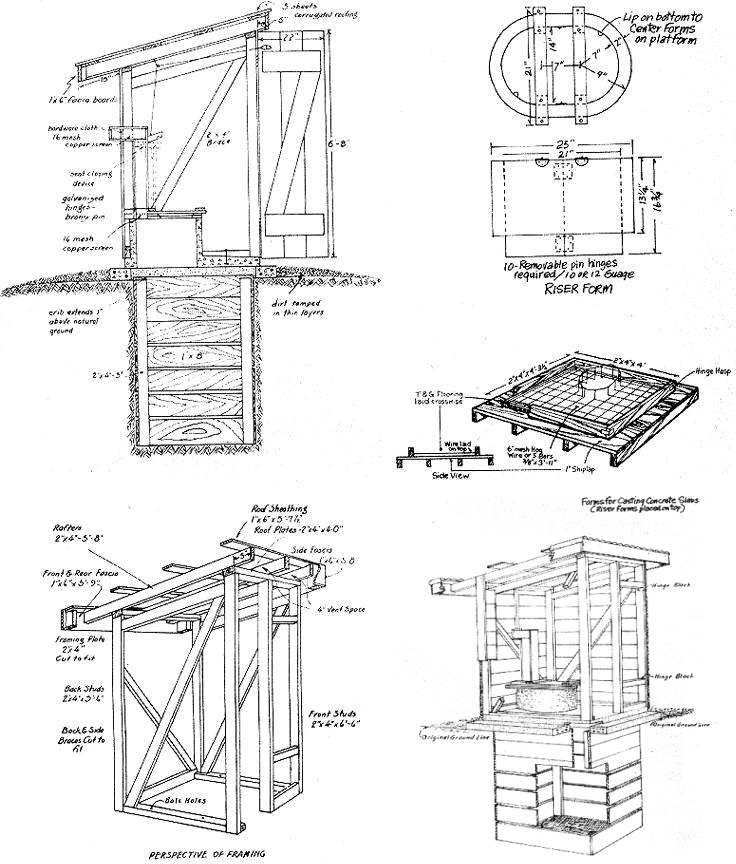 3 sheets
corrugated roofing
6"
22"
1 x 6" facia boards
6'-8"
2" x 4"
hardware cloth
16 mesh
copper screen
seat closing
device
galvanized
hinges-
bronze pin
16 mesh
copper screen
crib extends 1"
above natural
ground
dirt tamped
in thin layers
1" x 8"
2"x 4"-5'
Lip on bottom to
Center Forms
on platform
14"
21"
7"
7"
2"
9"
25"
21"
13¼"
16¾"
10-Removable pin hinges
required / 10 OR 12 Guage
RISER FORM
2"x4"x4'-3½"
2"x4"x4'
Hinge Hasp
T & G Flooring
laid crosswise
Wire laid
on top
6" mesh Hog
Wire or 5 Bars
⅜" x 3'-11"
1" Shiplap
Side View
Forms for Casting Concrete Slabs
(Riser Forms placed on top)
Roof Sheathing
1"x 6"x 5'-7½"
Roof Plates-2"x4"x4'-0"
Rafters
2"x4"-5'-8"
5"
Side Fascia
1"x6"x5'8
Front & Rear Fascia
1"x6"x5'-9"
4" Vent Space
Framing Plate
2"x4"
Cut to fit
Back Studs
2"x4"x5'-6"
Front Studs
2"x4"x6'-6"
Back & Side
Braces Cut to
fit
Bolt Holes
PERSPECTIVE OF FRAMING
Hinge Block
Hinge Block
Original Ground Line
Original Ground Line